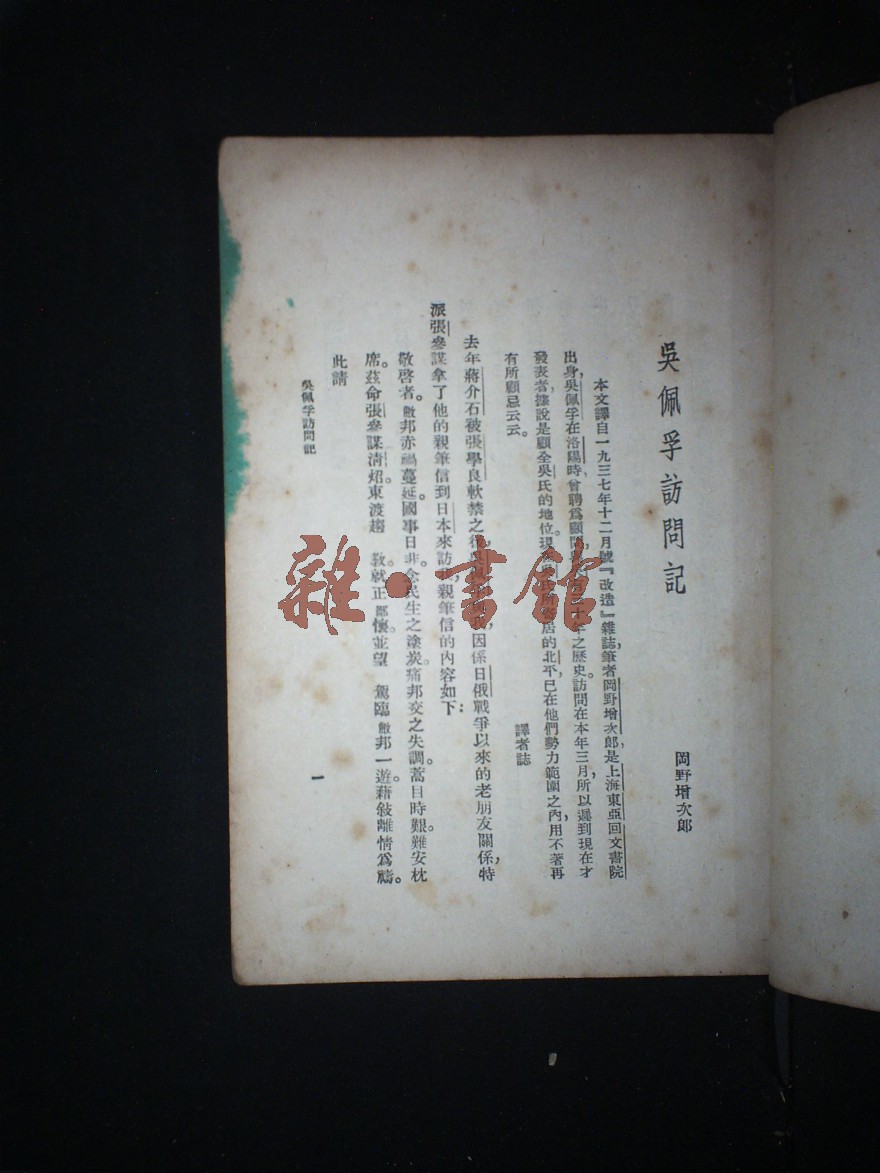 吳佩孚訪問記
岡野增次郎
本文譯自一九三七年十二月號『改造』雜誌,筆者岡野增次郎,是上海東亞回文書院
出身,吳佩孚在洛陽時曾聘爲顧問,十年之歷史。訪問在本年三月,所以遲到現在才
發表者,據說是顧全吳氏的地位。現居的北平已在他們勢力範圍之內,用不著再
有所顧忌云云。
譯者誌
去年蔣介石被張學良軟禁之後,因係日俄戰爭以來的老朋友關係,特
派張參謀拿了他的親筆信到日本來訪我,親筆信的內容如下:
敬啓者。敝邦赤禍蔓延。國事日非。念民生之塗炭。痛邦交之失調。蒿目時艱。難安枕
席。茲命張參謀清炤。東渡趨 教。就正鄙懷。並望 駕臨敝邦一遊。藉敍離情爲禱。
此請
吳佩孚訪問記
一
雜·書館